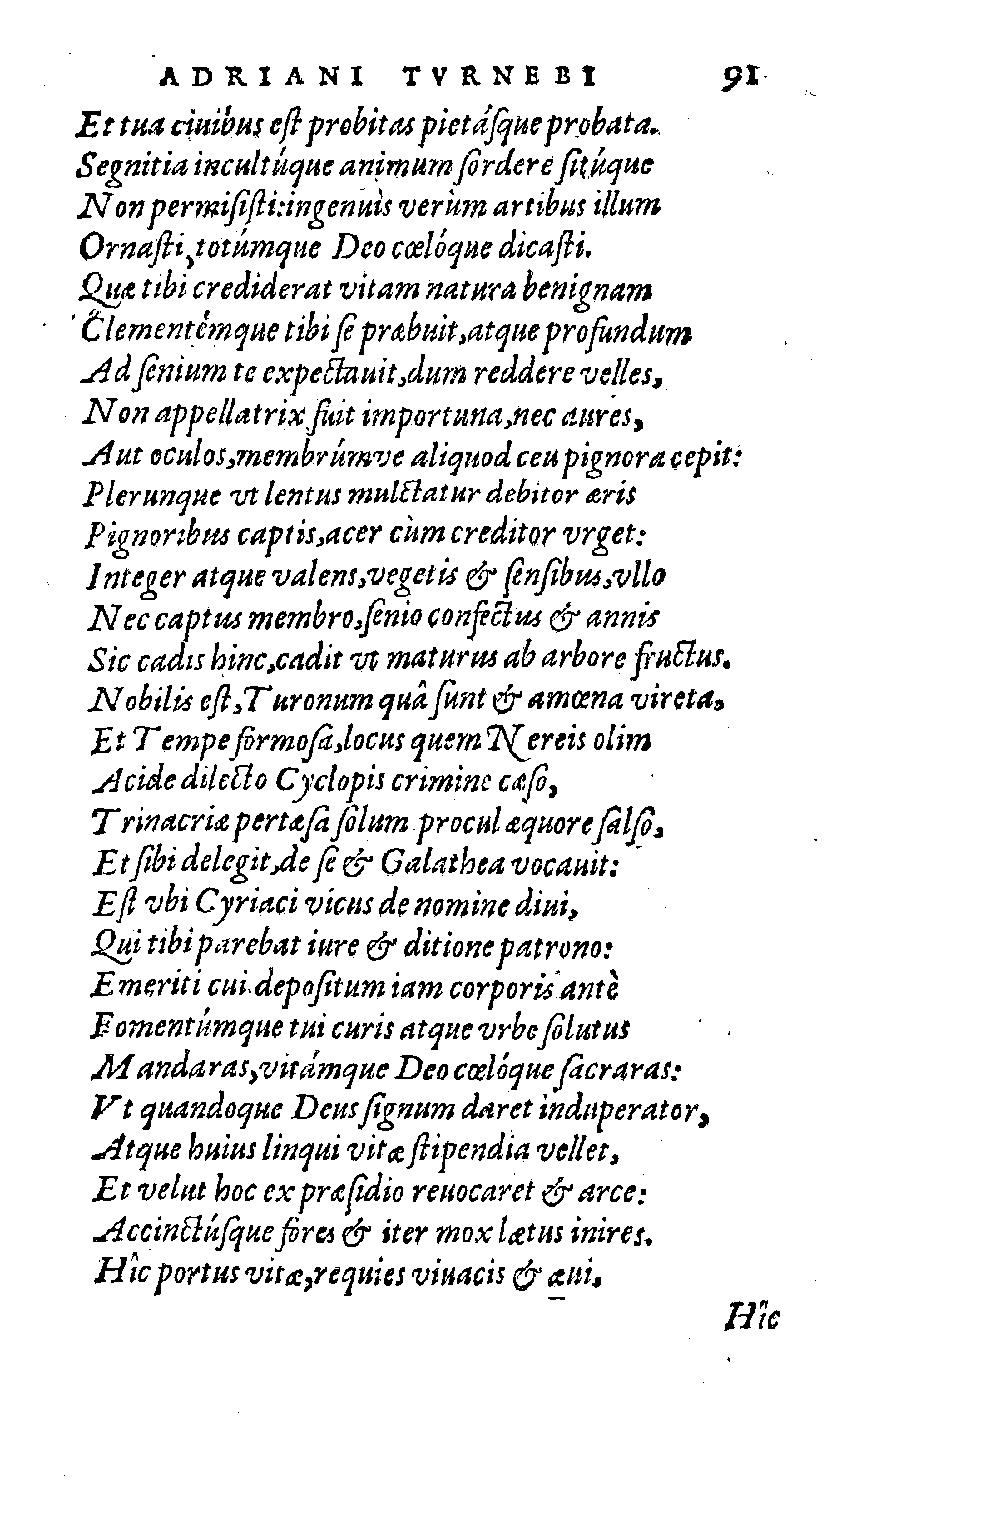 ADRIANI TVRNEBI 91
Et tua ciuibus eſt probitas pietáſque probata.
Segnitia incultúque animum ſordere ſitúque
Non permiſiſti: ingenuis verùm artibus illum
Ornaſti, totúmque Deo cœlóque dicaſti.
Quæ tibi crediderat vitam natura benignam
Clementémque tibi ſe præbuit, atque profundum
Ad ſenium te expectauit, dum reddere velles,
Non appellatrix fuit importuna, nec aures,
Aut oculos, membrúmve aliquod ceu pignora cepit:
Plerunque vt lentus mulctatur debitor æris
Pignoribus captis, acer cùm creditor vrget:
Integer atque valens, vegetis & ſenſibus, vllo
Nec captus membro, ſenio confectus & annis
Sic cadis hinc, cadit vt maturus ab arbore fructus.
Nobilis eſt, Turonum quâ ſunt & amœna vireta,
Et Tempe formoſa, locus quem Nereis olim
Acide dilecto Cyclopis crimine cæſo,
Trinacriæ pertæſa ſolum procul æquore ſalſo,
Et ſibi delegit, de ſe & Galathea vocauit:
Eſt vbi Cyriaci vicus de nomine diui,
Qui tibi parebat iure & ditione patrono:
Emeriti cui depoſitum iam corporis antè
Fomentúmque tui curis atque vrbe ſolutus
Mandaras, vitámque Deo cœlóque ſacraras:
Vt quandoque Deus ſignum daret induperator,
Atque huius linqui vitæ ſtipendia vellet,
Et velut hoc ex præſidio reuocaret & arce:
Accinctúſque fores & iter mox lætus inires.
Hîc portus vitæ, requies viuacis & æui,
Hîc